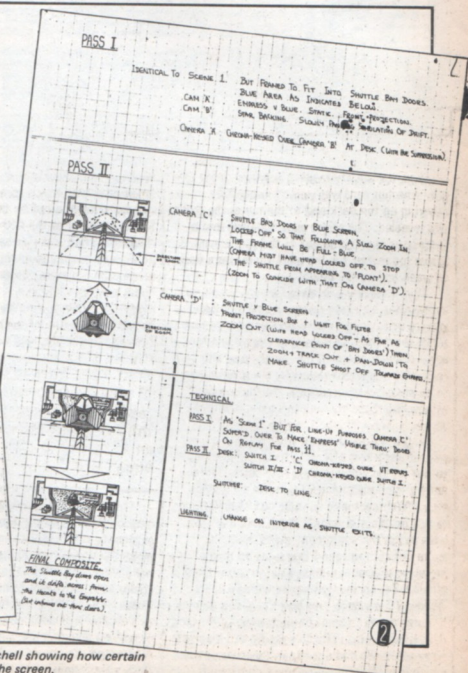 PASS I.
IDENTICAL TO SCENE 1. BUT FRAMED TO FIT INTO SHUTTLE BAY DOORS.
BLUE AREA AS INDICATED BELOW.
CAM 'A' EMPRESS V BLUE. STATIC. FRONT PROJECTION.
CAM 'B' STAR BACKING. SLOWLY SIMULATING OF DRIFT.
CAMERA 'A' CHROMA-KEYED OVER CAMERA 'B' AT DESK
PASS II
CAMERA 'C' : SHUTTLE BAY DOORS V BLUE SCREEN.
"LOCKED-OFF" SO THAT FOLLOWING A SLOW ZOOM IN
THE FRAME WILL BE FULL-BLUE.
(CAMERA MUST HAVE HEAD LOCKED OFF TO STOP
THE SHUTTLE FROM APPEARING TO "FLOAT").
(ZOOM TO COINCIDE WITH THAT ON CAMERA 'D').
CAMERA 'D' : SHUTTLE V BLUE SCREEN
FRONT PROJECTION + LIGHT FOG FILTER
ZOOM OUT (WITH HEAD LOCKED OFF - AS FAR AS
CLEARANCE POINT OF 'BAY DOORS') THEN
ZOOM + TRACK OUT + PAN-DOWN TO
MAKE SHUTTLE SHOOT OFF TOWARDS
TECHNICAL
PASS I. AS 'SCENE 1'. BUT FOR LINE-UP PURPOSES CAMERA 'C'
SUPER'D OVER TO MAKE 'EMPRESS' VISIBLE THRU' DOORS
ON REPLAY FOR PASS II.
PASS II. DESK: SWITCH I. 'C' CHROMA-KEYED OVER VT
SWITCH II/III : 'D' CHROMA-KEYED OVER SWITCH I.
SWITCHER: DESK TO LINE.
LIGHTING CHANGE ON INTERIOR AS SHUTTLE EXITS.
FINAL COMPOSITE
The Shuttle Bay doors open
and it drifts across from
the to the Empress.
12
chell showing how certain
he screen.